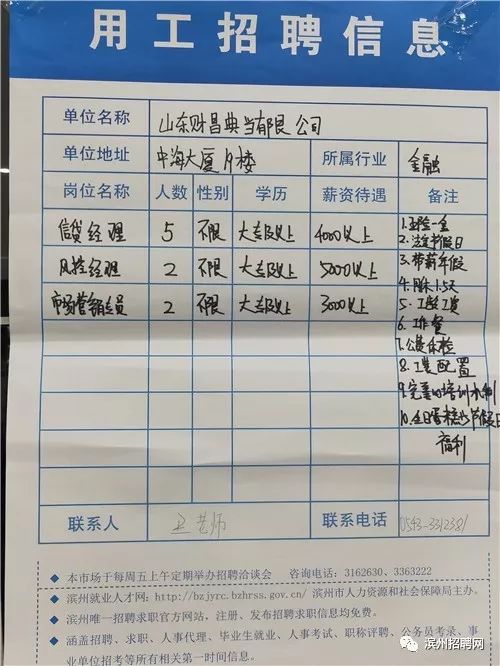 用工招聘信息
单位名称 山东财昌典当有限公司
单位地址 中海大厦19楼 所属行业 金融
岗位名称 人数 性别 学历 薪资待遇 备注
信贷经理 5 不限 大专及以上 4000以上
风控经理 2 不限 大专及以上 5000以上
市场营销专员 2 不限 大专及以上 3000以上
1.五险一金
2.法定节假日
3.带薪年假
4.周休1.5天
5.工龄工资
6.工作餐
7.公费体检
8.工装配置
9.完善的培训机制
10.生日蛋糕、节假日
福利
联系人 王老师 联系电话 0543-3312381
◆ 本市场于每周五上午定期举办招聘洽谈会 咨询电话：3162630、3363222
◆ 滨州就业人才网：http://bzjyrc.bzhrss.gov.cn/ 滨州市人力资源和社会保障局主办。
◆ 滨州唯一招聘求职官方网站，注册、发布招聘求职信息均免费。
◆ 涵盖招聘、求职、人事代理、毕业生就业、人事考试、职称评聘、公务员考录、事
业单位招考等所有相关第一时间信息。
滨州招聘网